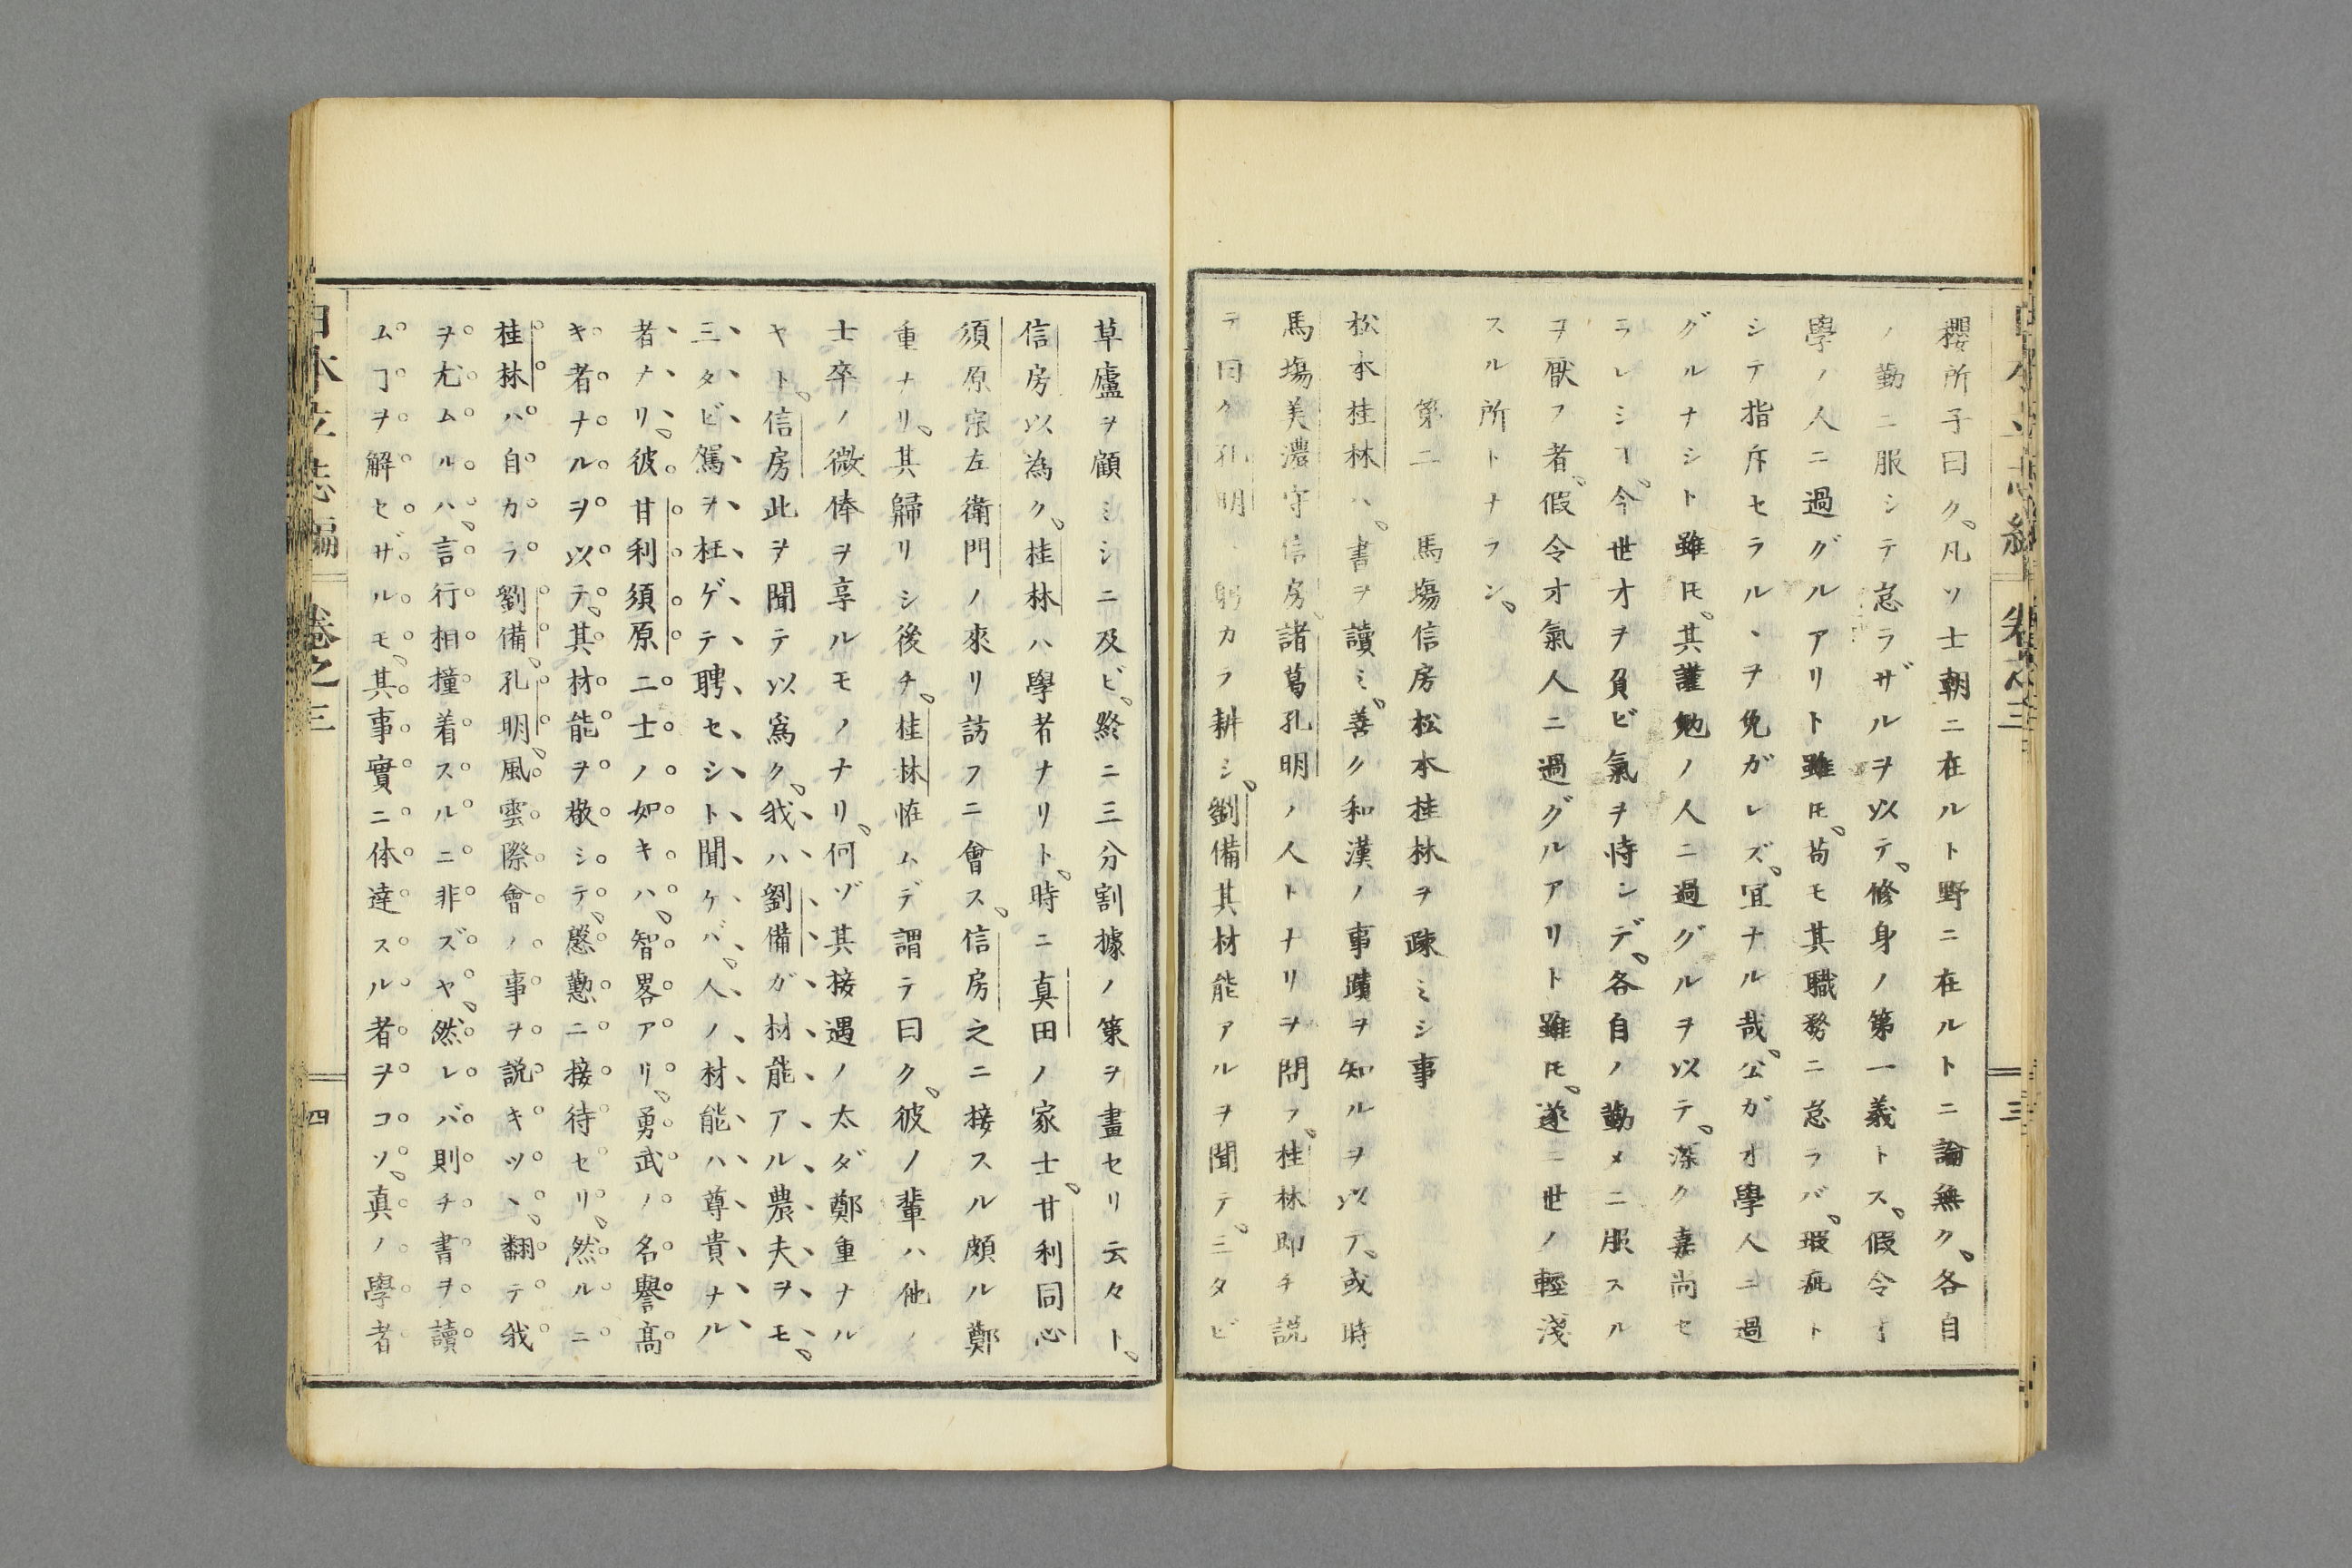 櫻所子曰ク、凡ソ士朝ニ在ルト野ニ在ルトニ論無ク、各自
ノ勤ニ服シテ怠ラザルヲ以テ、修身ノ第一義トス、假令才
學ノ人ニ過グルアリト雖𪜈、苟モ其職務ニ怠ラバ、瑕疵ト
シテ指斥セラルヽヲ免ガレズ、宜ナル哉、公ガ才學人ニ過
グルナシト雖𪜈、其謹勉ノ人ニ過グルヲ以テ、深ク嘉尚セ
ラレシヿ、今世才ヲ負ビ氣ヲ恃シデ、各自ノ勤メニ服スル
ヲ厭フ者、假令才氣人ニ過グルアリト雖𪜈、遂ニ世ノ輕淺
スル所トナラン、
第二 馬塲信房松本桂林ヲ疎ミシ事
松本桂林ハ、書ヲ讀ミ、善ク和漢ノ事蹟ヲ知ルヲ以テ、或時
馬塲美濃守信房、諸葛孔明ノ人トナリヲ問フ、桂林即チ説
テ曰ク孔明、躬カラ耕シ、劉備其材能アルヲ聞テ、三タビ
草廬ヲ顧ミシニ及ビ、終ニ三分割據ノ策ヲ畫セリ云々ト、
信房以為ク、桂林ハ學者ナリト、時ニ真田ノ家士、甘利同心
須原宗左衛門ノ來リ訪フニ會ス、信房之ニ接スル頗ル鄭
重ナリ、其歸リシ後チ、桂林恠ムデ謂テ曰ク、彼ノ輩ハ他ノ
士卒ノ微俸ヲ享ルモノナリ、何ゾ其接遇ノ太ダ鄭重ナル
ヤト、信房此ヲ聞テ以爲ク、我ハ劉備ガ材能アル農夫ヲモ、
三タビ駕ヲ枉ゲテ聘セシト聞ケバ、人ノ材能ハ尊貴ナル
者ナリ、彼甘利須原二士ノ如キハ、智畧アリ、勇武ノ名譽高
キ者ナルヲ以テ、其材能ヲ敬シテ、慇懃ニ接待セリ、然ルニ
桂林ハ自カラ劉備、孔明、風雲際會ノ事ヲ説キツヽ、翻テ我
ヲ尤ムルハ、言行相撞着スルニ非ズヤ、然レバ則チ書ヲ讀
ムヿヲ解セザルモ、其事實ニ体達スル者ヲコソ、真ノ學者
日本立志編 卷之三 四